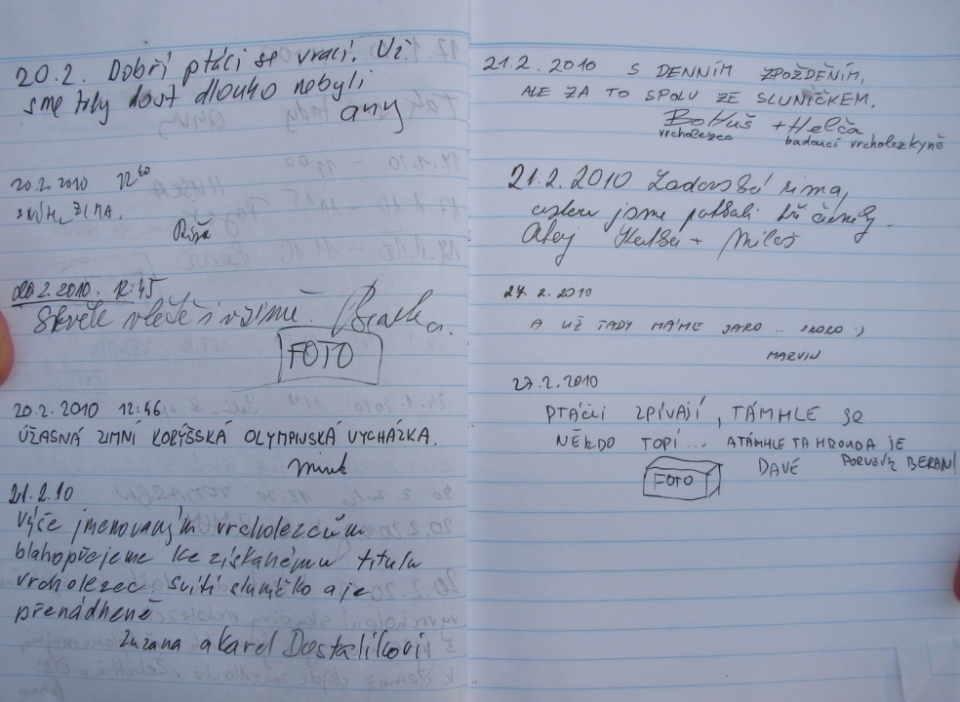 20.2. Dobří ptáci se vrací. Už
sme tily dost dlouho nobyli
any
20.2.2010 12⁶⁰
SNÍH, ZIMA.
Rýža
20.2.2010. 12:45
Skvělé i v zimě.
FOTO
20.2.2010 12:46
ÚŽASNÁ ZIMNÍ KOBYŠSKÁ OLYMPIJSKÁ VYCHÁZKA.
mink
21.2.10
Výče jmenovaným vrcholezcům
blahopřejeme ke získanému titulu
vrcholezec. Svítí sluníčko a je
přenádherně
Zuzana a Karel Dostalíkovi
21.2.2010 S DENNÍM ZPOŽDĚNÍM,
ALE ZA TO SPOLU ZE SLUNÍČKEM.
BoHuš + Helča
vrcholezec badoucí vrcholezkyně
21.2.2010 Ladovská zima,
jsme potkali tři
Ahoj + Miloš
24.2.2010
A UŽ TADY MÁME JARO .. SKORO :)
MARVIN
27.2.2010
PTÁČCI ZPÍVAJÍ, TÁMHLE SE
NĚKDO TOPÍ... A TÁMHLE TA HROUDA JE
DAVÉ BERAN!
FOTO